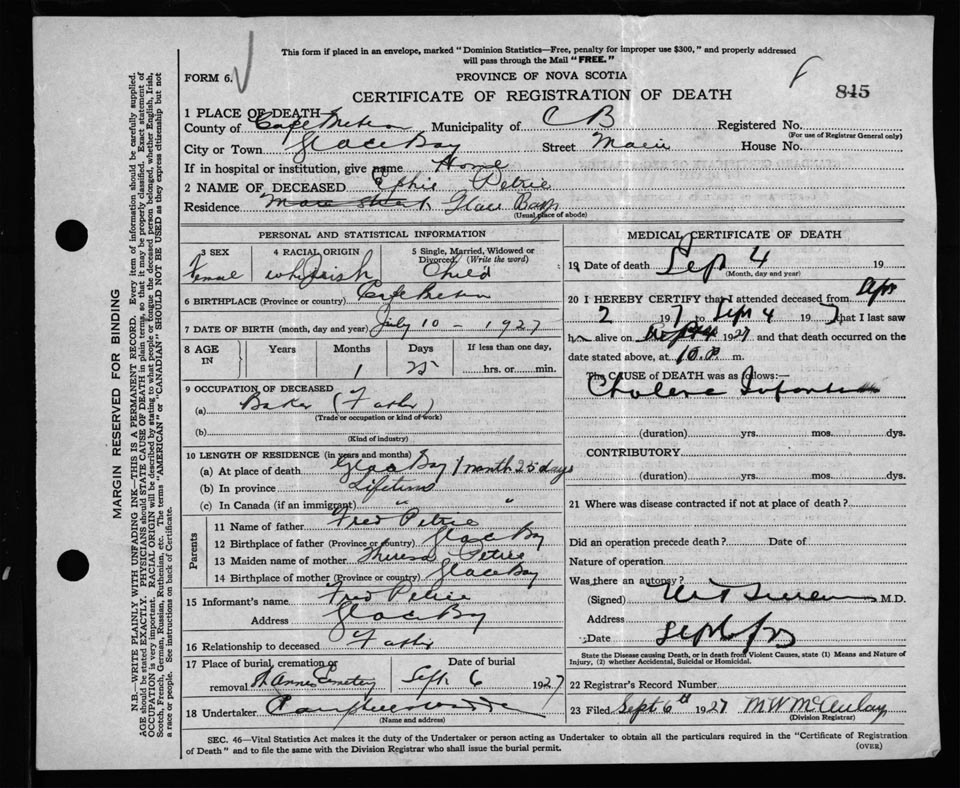 This form if placed in an envelope, marked "Dominion Statistics—Free, penalty for improper use $300," and properly addressed
will pass through the Mail "FREE."
FORM 6.
PROVINCE OF NOVA SCOTIA
845
CERTIFICATE OF REGISTRATION OF DEATH
1 PLACE OF DEATH
County of Cape Breton Municipality of C B Registered No.
(For use of Registrar General only)
City or Town Glace Bay Street Main House No.
If in hospital or institution, give name Home
2 NAME OF DECEASED Ephie Petrie
Residence Main Street Glace Bay
(Usual place of abode)
PERSONAL AND STATISTICAL INFORMATION
3 SEX 4 RACIAL ORIGIN 5 Single, Married, Widowed or Divorced, (Write the word)
Female Irish Child
6 BIRTHPLACE (Province or country) Cape Breton
7 DATE OF BIRTH (month, day and year) July 10 - 1927
8 AGE IN Years Months Days If less than one day,
1 25 hrs. or min.
9 OCCUPATION OF DECEASED
(a) Baker (Father)
(Trade or occupation or kind of work)
(b)
(Kind of industry)
10 LENGTH OF RESIDENCE (in years and months)
(a) At place of death Glace Bay 1 month 25 days
(b) In province Lifetime
(c) In Canada (if an immigrant) " "
Parents
11 Name of father Fred Petrie
12 Birthplace of father (Province or country) Glace Bay
13 Maiden name of mother Theresa Petrie
14 Birthplace of mother (Province or country) Glace Bay
15 Informant's name Fred Petrie
Address Glace Bay
16 Relationship to deceased Father
17 Place of burial, cremation or removal St. Annes Cemetery
Date of burial Sept. 6 1927
18 Undertaker
(Name and address)
MEDICAL CERTIFICATE OF DEATH
19 Date of death Sep 4 19
(Month, day and year)
20 I HEREBY CERTIFY that I attended deceased from Sep
2 19 7 to Sep 4 19 7 that I last saw
h alive on 1927 and that death occurred on the
date stated above, at 10. m.
The CAUSE of DEATH was as follows:—
Cholera Infantum
(duration) yrs. mos. dys.
CONTRIBUTORY
(duration) yrs. mos. dys.
21 Where was disease contracted if not at place of death?
Did an operation precede death? Date of
Nature of operation
Was there an autopsy?
(Signed) M.D.
Address
Date
State the Disease causing Death, or in death from Violent Causes, state (1) Means and Nature of
Injury, (2) whether Accidental, Suicidal or Homicidal.
22 Registrar's Record Number
23 Filed Sept 6th 1927 M W McAulay
(Division Registrar)
SEC. 46—Vital Statistics Act makes it the duty of the Undertaker or person acting as Undertaker to obtain all the particulars required in the "Certificate of Registration
of Death" and to file the same with the Division Registrar who shall issue the burial permit.
(OVER)
MARGIN RESERVED FOR BINDING
N.B.—WRITE PLAINLY WITH UNFADING INK—THIS IS A PERMANENT RECORD. Every item of information should be carefully supplied.
AGE should be stated EXACTLY. PHYSICIANS should STATE CAUSE OF DEATH in plain terms, so that it may be properly classified. Exact statement of
OCCUPATION is very important. RACIAL ORIGIN will be described by stating to what people or tongue the deceased person belonged, whether English, Irish,
Scotch, French, German, Russian, Ruthenian, etc. The terms "AMERICAN" or "CANADIAN" SHOULD NOT BE USED as they express citizenship but not
a race or people. See instructions on back of Certificate.